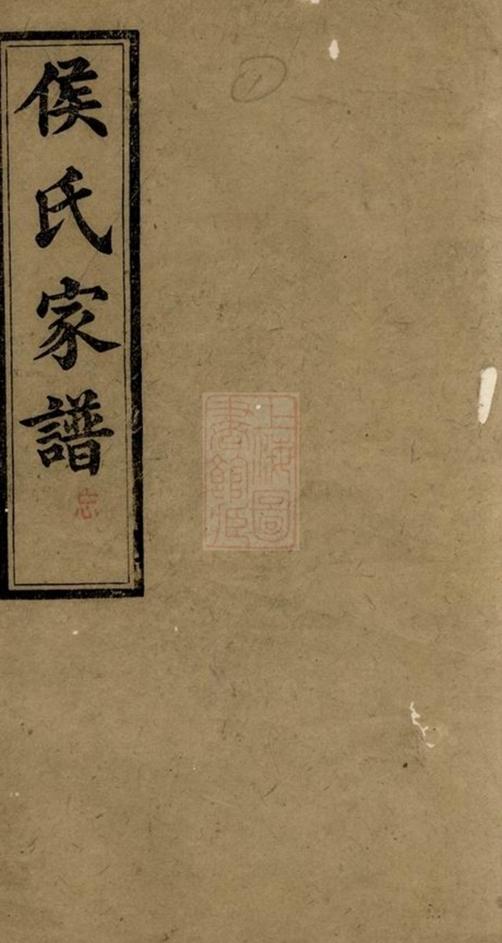 侯氏家譜
忘
上海圖
書館藏
1